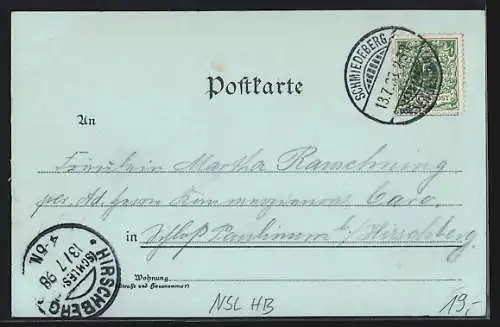 Postkarte
SCHMIEDEBERG
13.7.
An
Fräulein Martha Rauschning
per. Ad. Herrn Kommerzienrat Caro.
in Schloß Paulinum b/Hirschberg
HIRSCHBERG
(SCHLES.)
13/7 98
4-5N.
Wohnung
(Straße und Hausnummer)
NSL HB
19,-